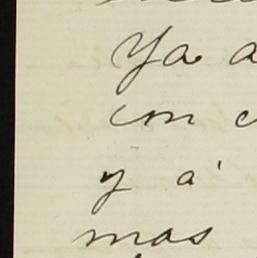 Ya a
con c
y á
mas